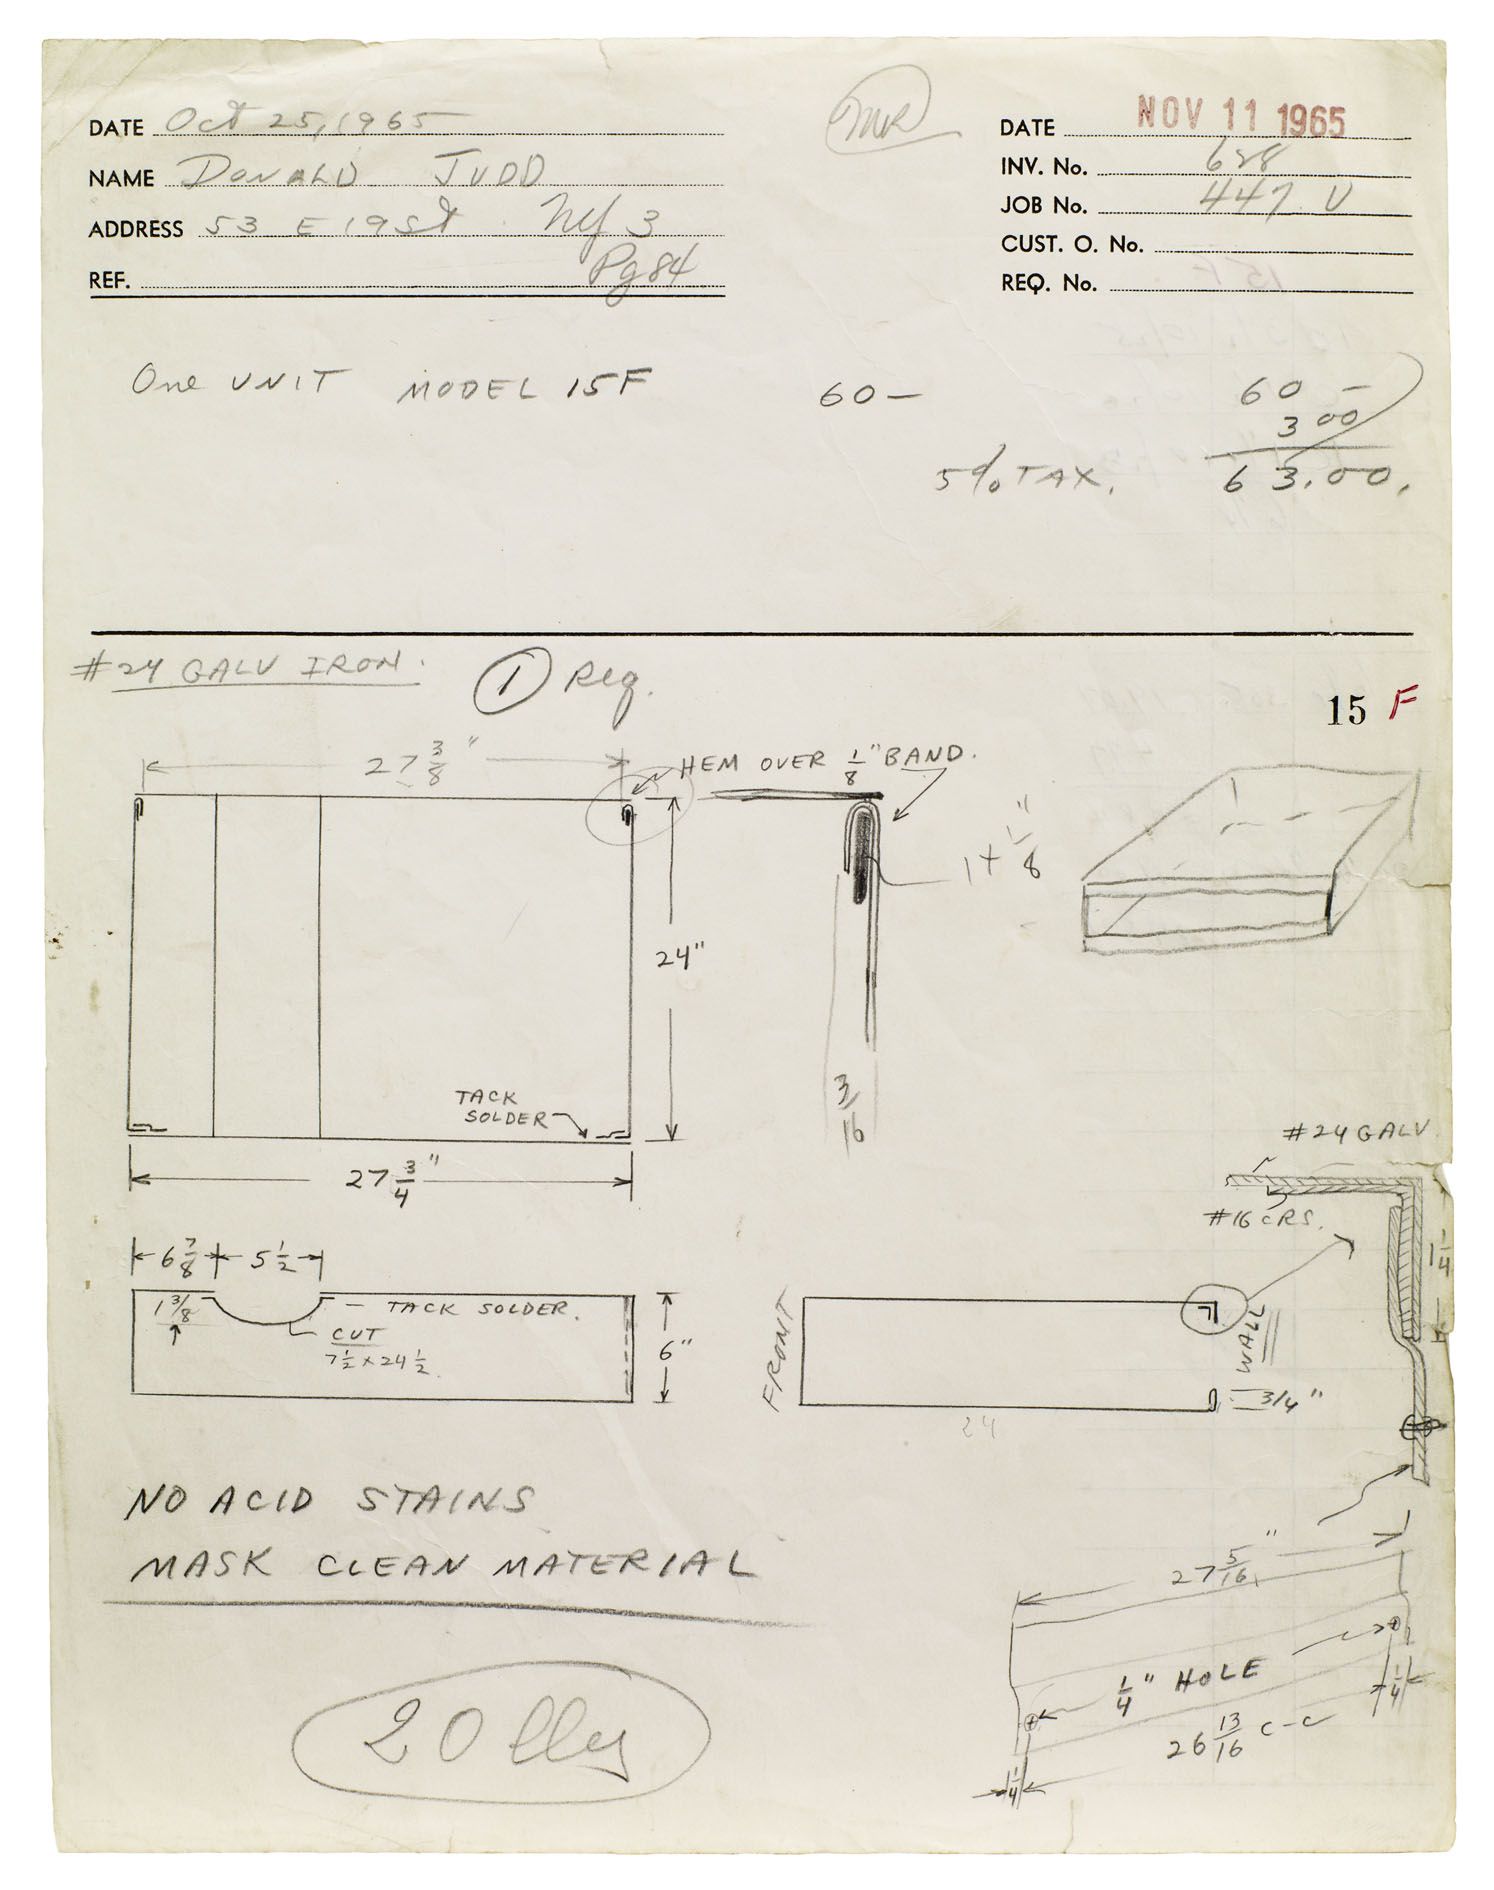 DATE Oct 25, 1965
NAME DONALD JUDD
ADDRESS 53 E 19 St NY 3
REF. Pg 84
DATE NOV 11 1965
INV. No. 628
JOB No. 447 U
CUST. O. No.
REQ. No.
One UNIT MODEL 15F 60– 60 –
3 00
5% TAX. 63.00.
#24 GALV IRON. 1 Req.
15 F
27 3/8 " HEM OVER 1/8" BAND.
1 x 1/8"
24"
TACK
SOLDER
3/16
27 3/4"
#24 GALV
#16 CRS.
1 1/4
6 7/8 5 1/2
1 3/8 TACK SOLDER.
CUT
7 1/2 x 24 1/2
6"
FRONT
WALL
3/4"
24
NO ACID STAINS
MASK CLEAN MATERIAL
27 5/16"
1/4" HOLE
1/4
26 13/16 C-C
1/4
20